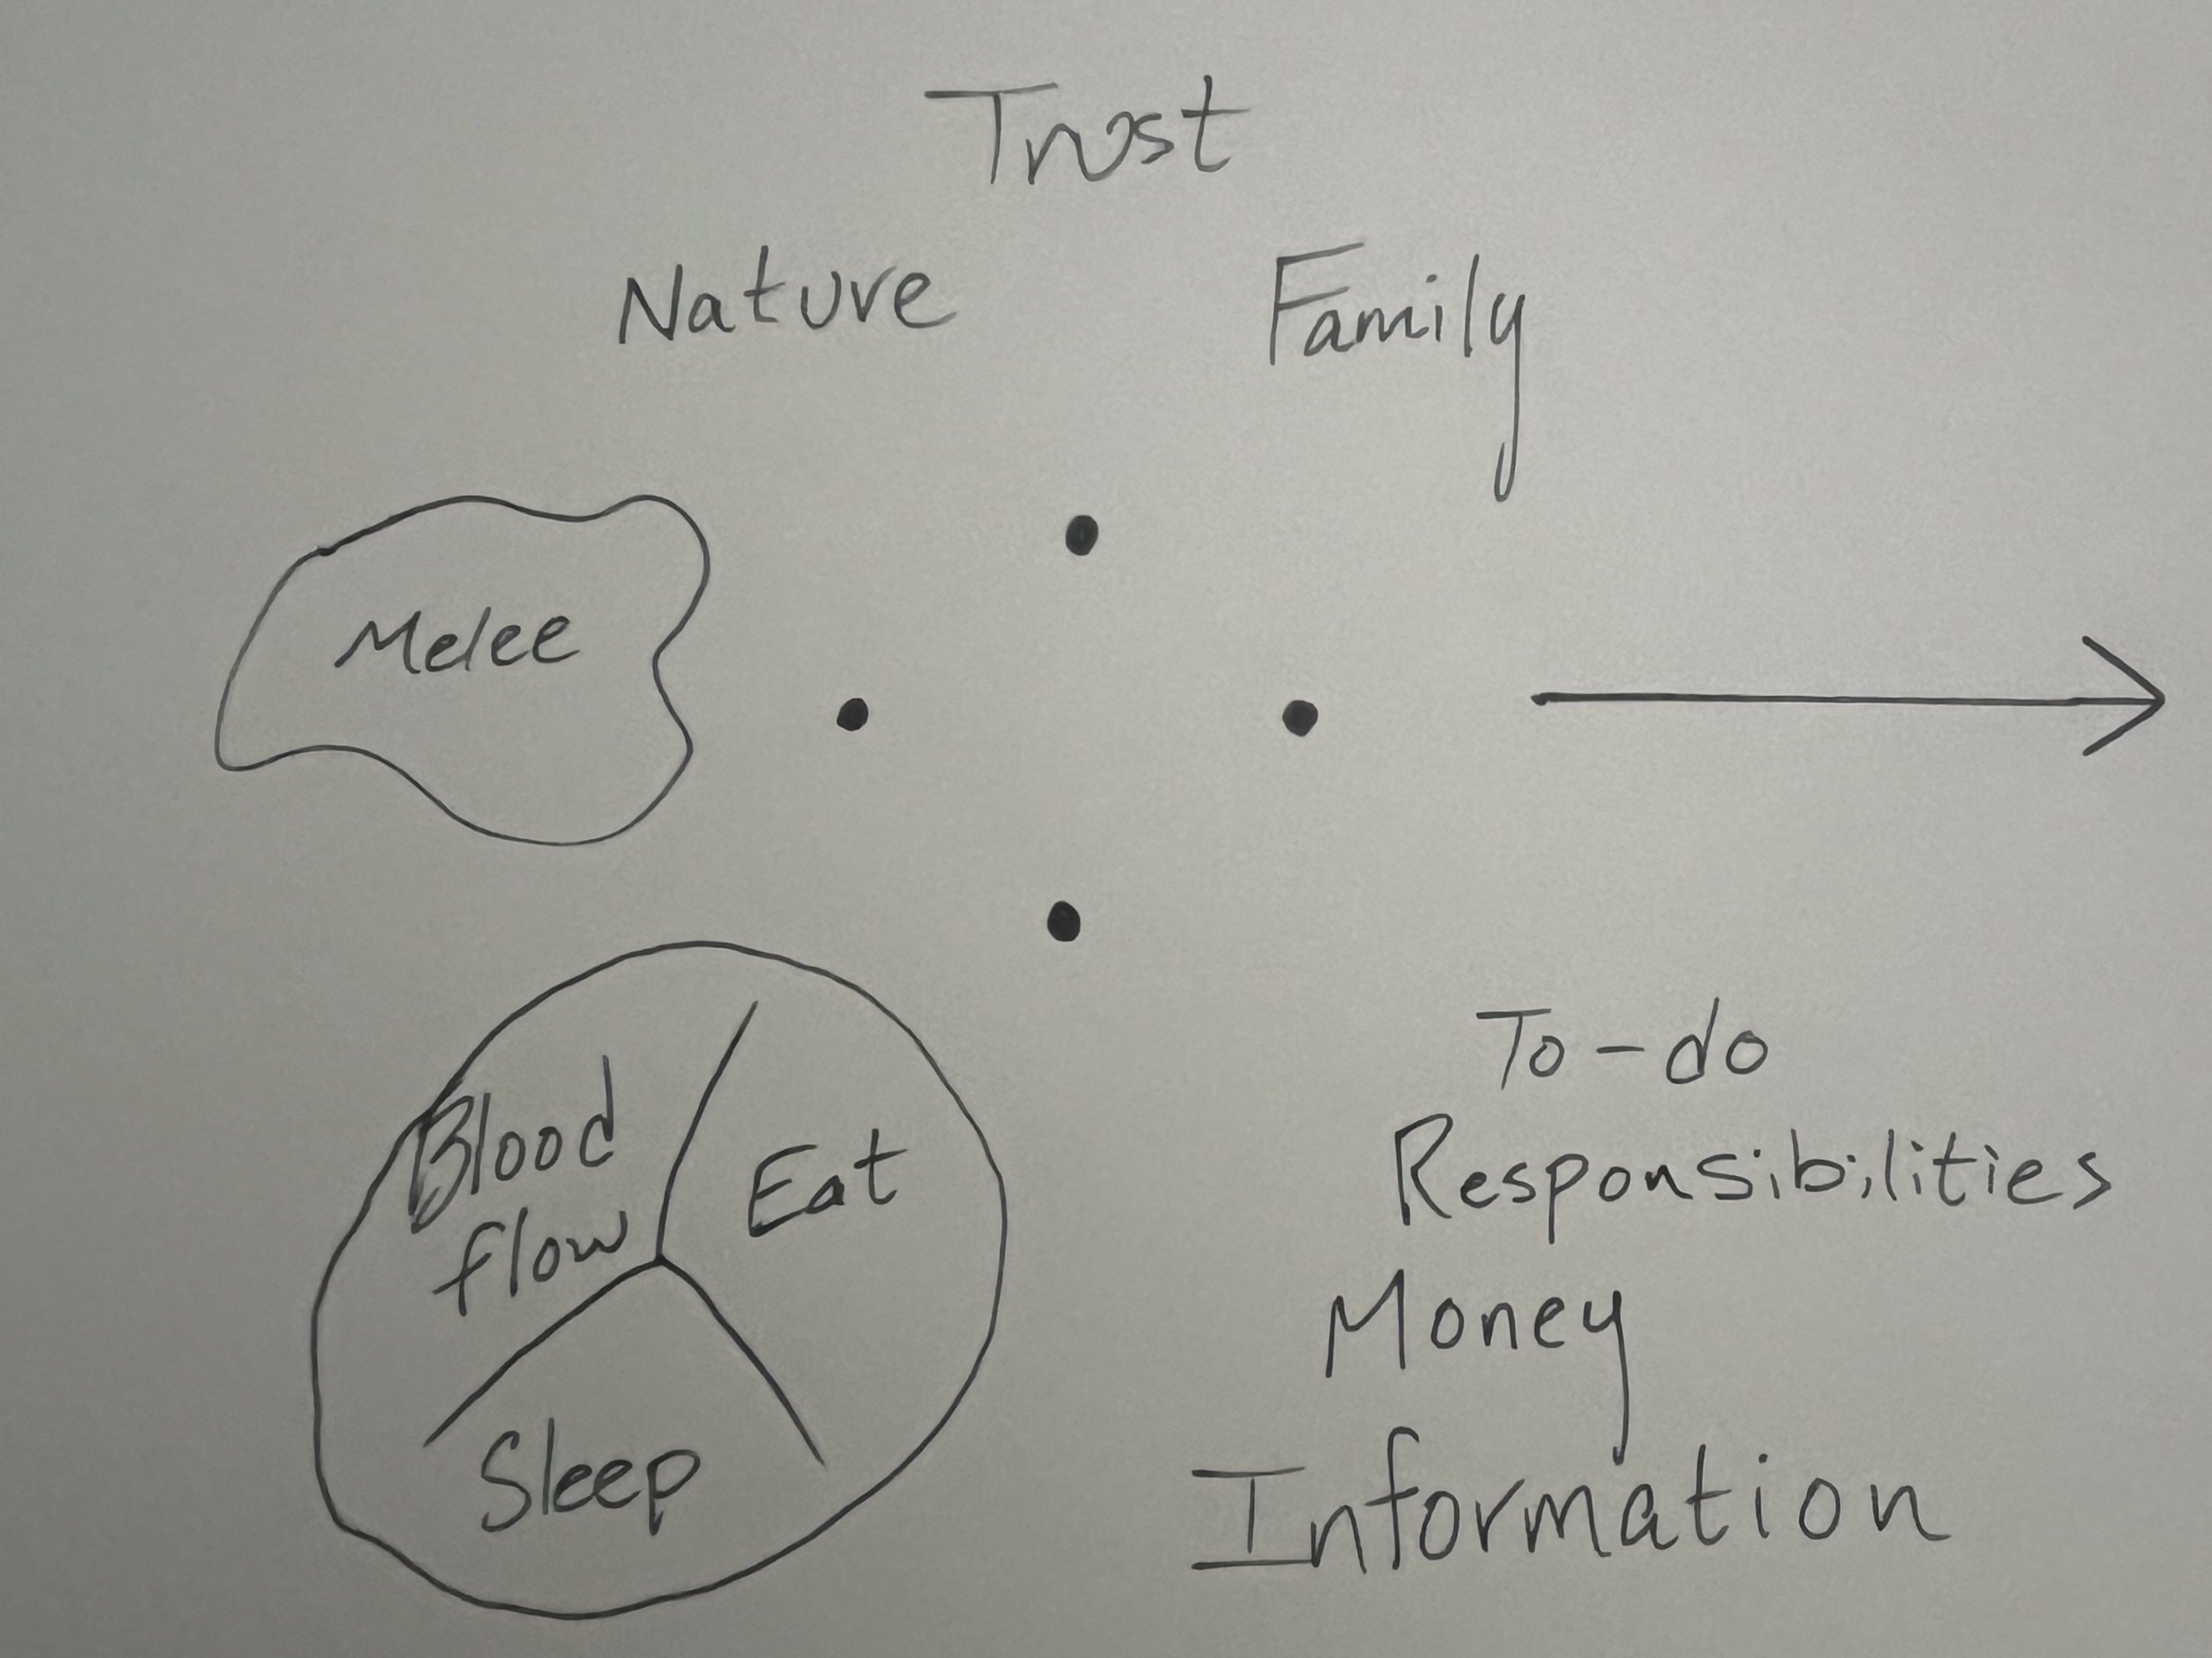 Trust
Nature
Family
Melee
Blood
flow
Eat
Sleep
To-do
Responsibilities
Money
Information